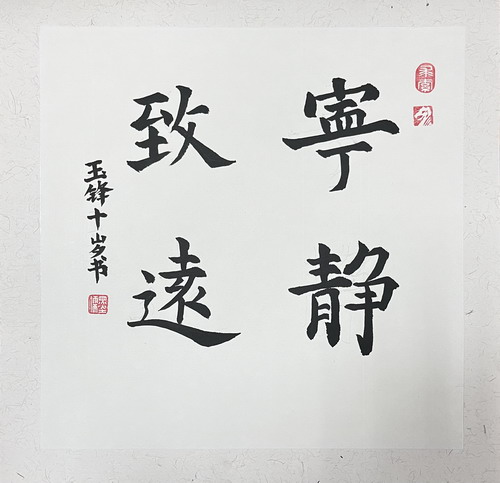 寧静
致遠
玉锋十岁书